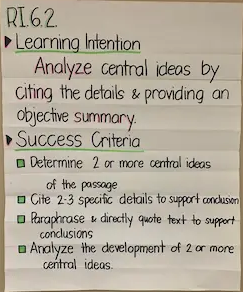 RI.6.2
Learning Intention
Analyze central ideas by
citing the details & providing an
objective summary.
Success Criteria
Determine 2 or more central ideas
of the passage
Cite 2-3 specific details to support conclusion
Paraphrase & directly quote text to support
conclusions
Analyze the development of 2 or more
central ideas.